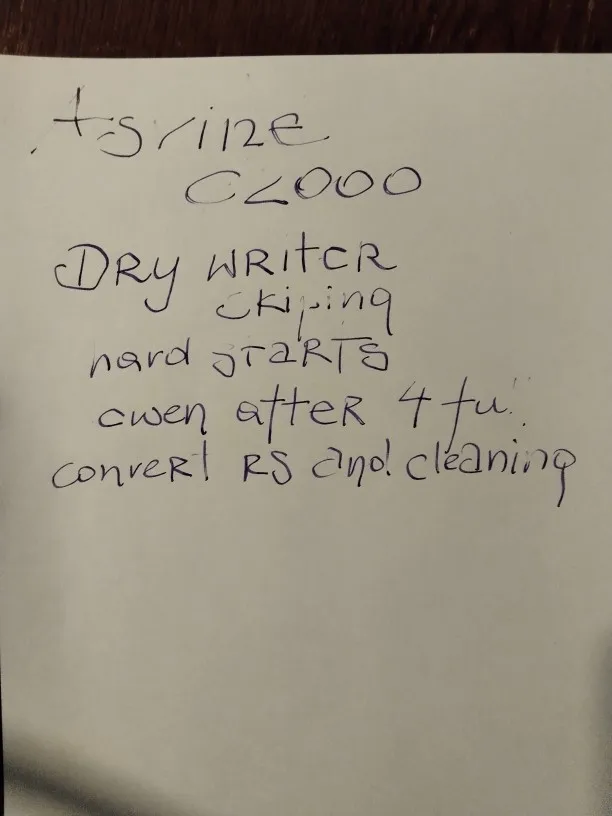 C2000
DRY WRITER
skiping
hard STARTS
even after 4 fu
convert RS and cleaning